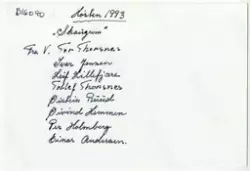 B16090
Hösten 1993
"Skaugum"
Fra V. Tor Thorsnes
Iver Jensen
Leif Lillefjære
Tollef Thorsnes
Øistein Ruud
Øivind Hemmen
Per Holmberg
Einar Andersen.